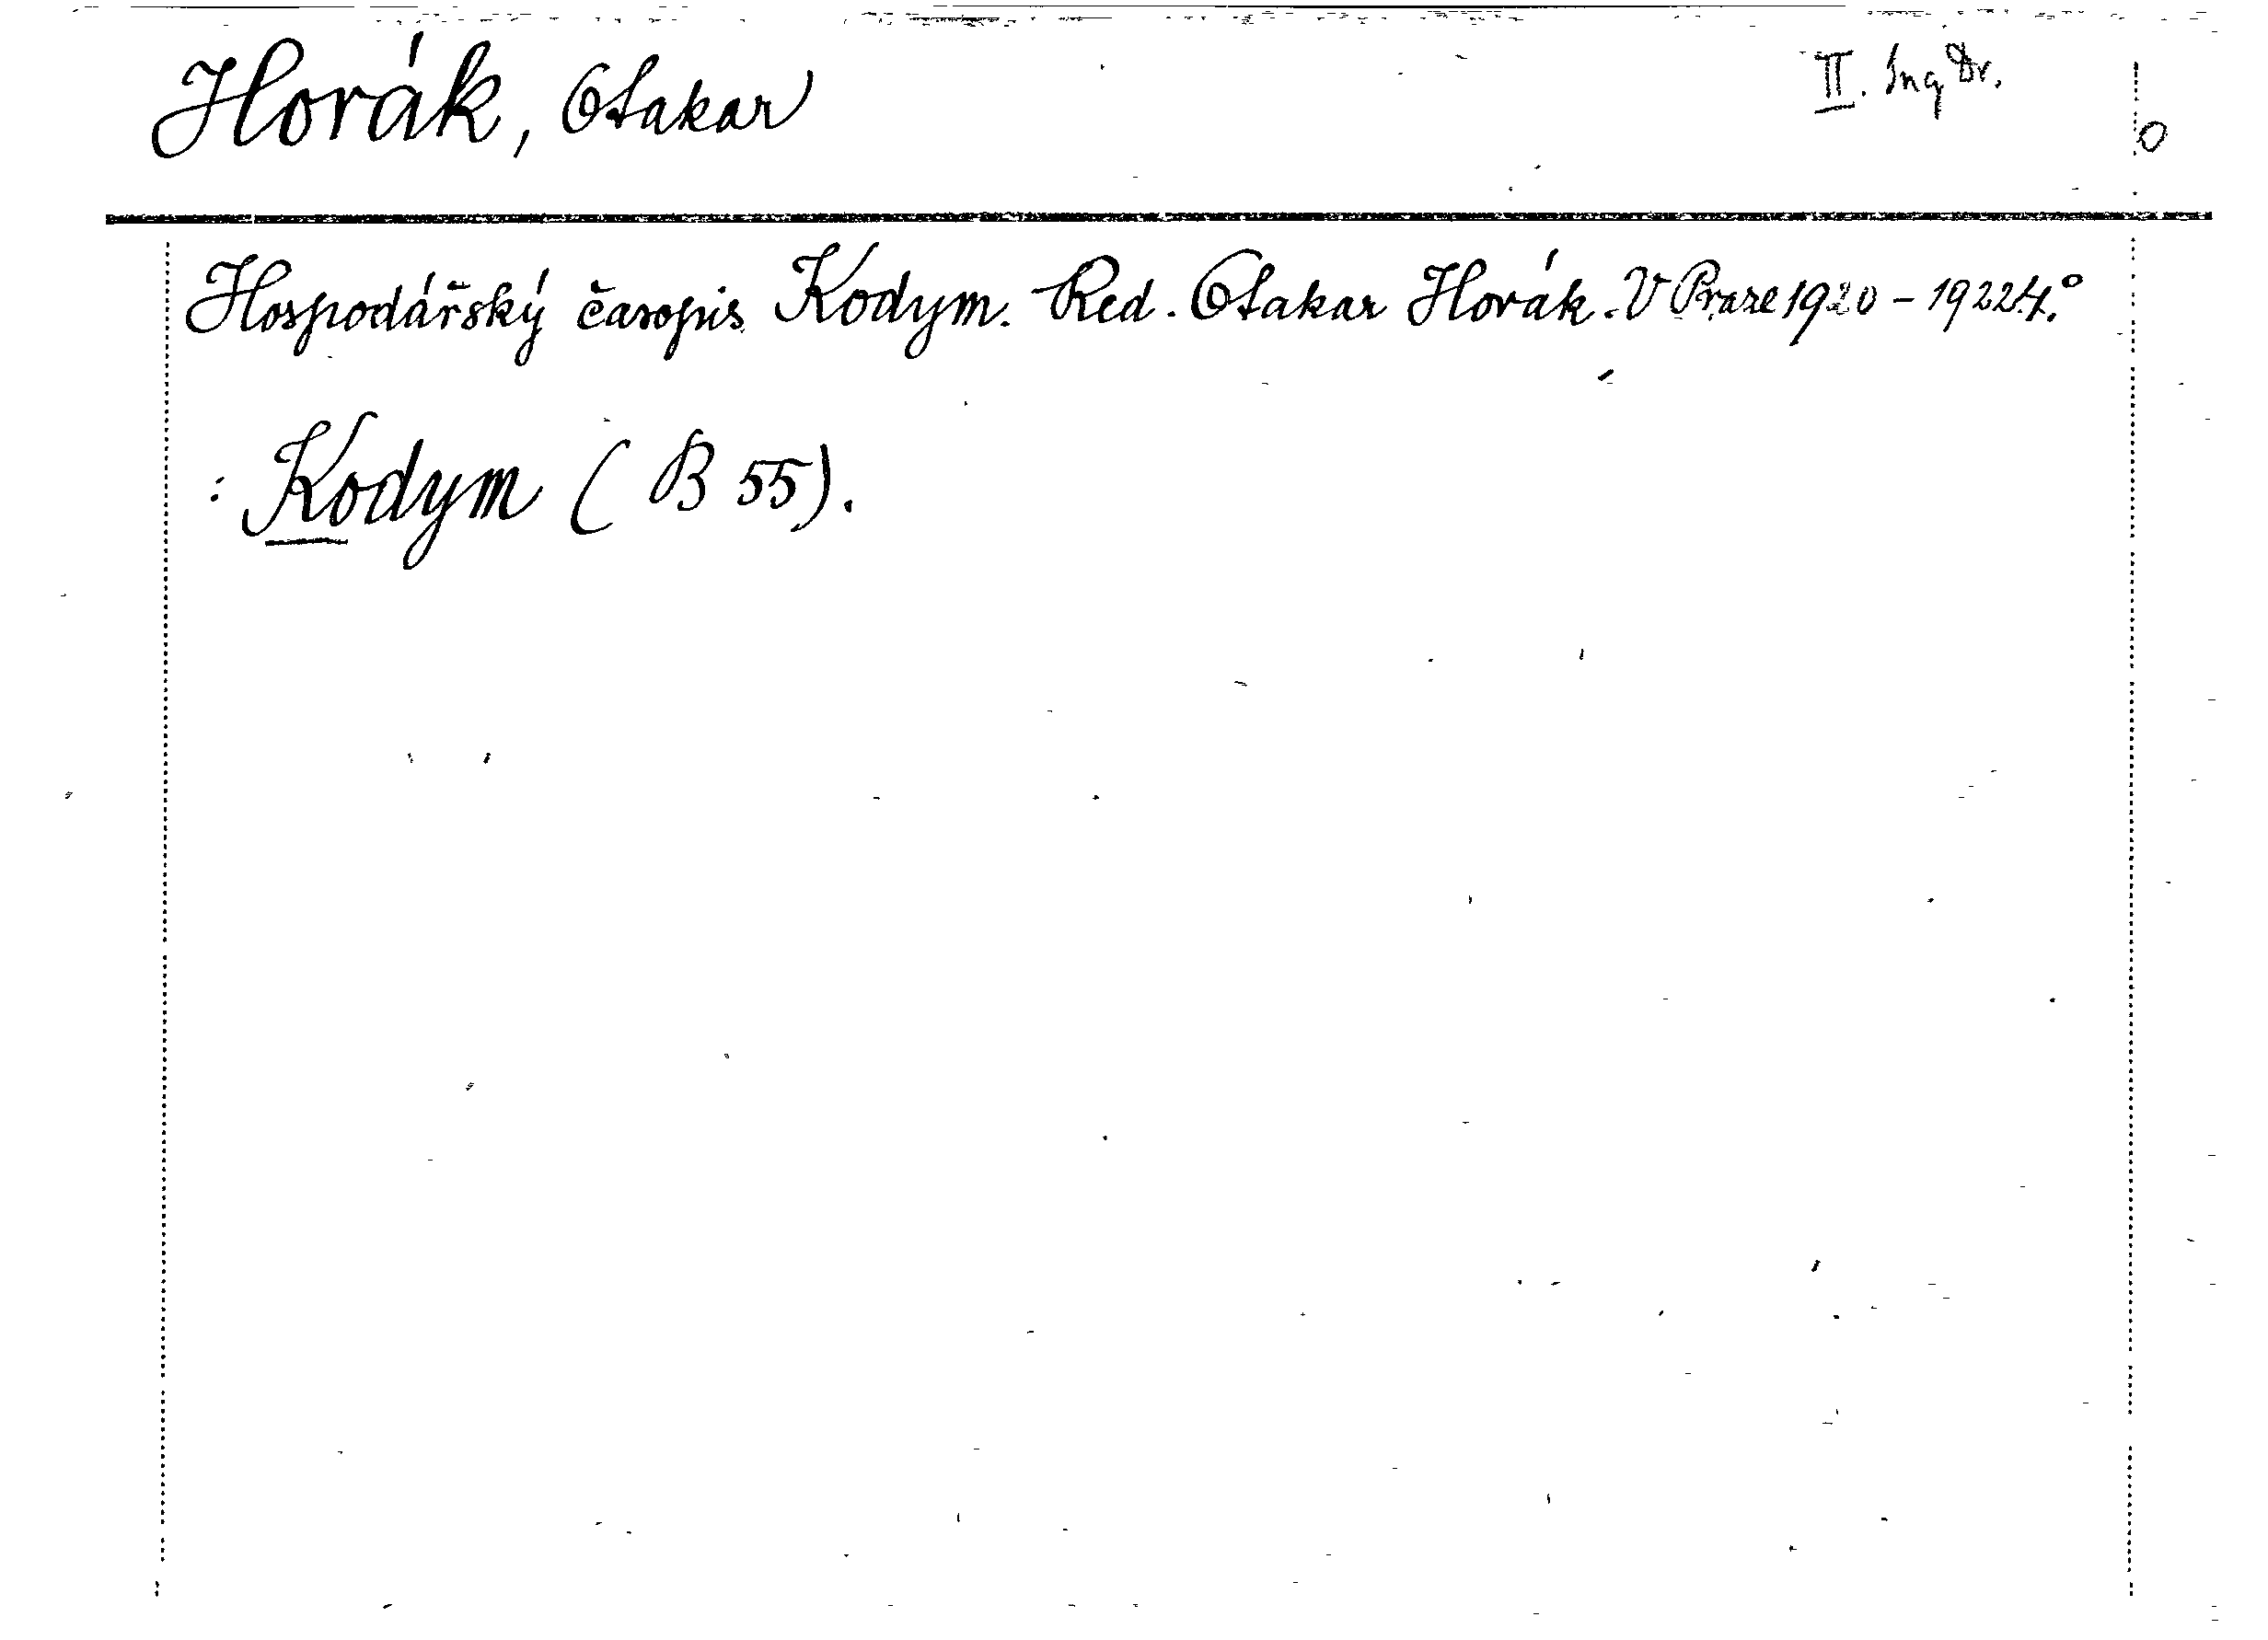 Horák, Otakar II. Ing Dr. O
Hospodářský časopis Kodym. Red. Otakar Horák. V Praze 1920 - 1922. 4.°
: Kodym ( B 55).